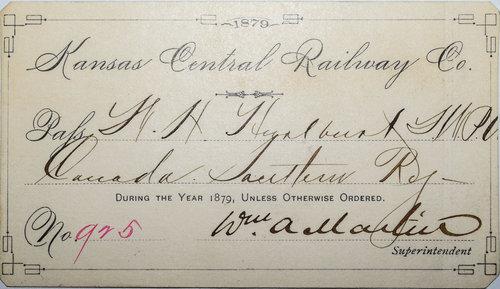 1879
Kansas Central Railway Co.
Pass W. H. Hurlburt G.W.P.A
Canada Southern Ry
DURING THE YEAR 1879, UNLESS OTHERWISE ORDERED.
No. 925 Wm A Martin
Superintendent